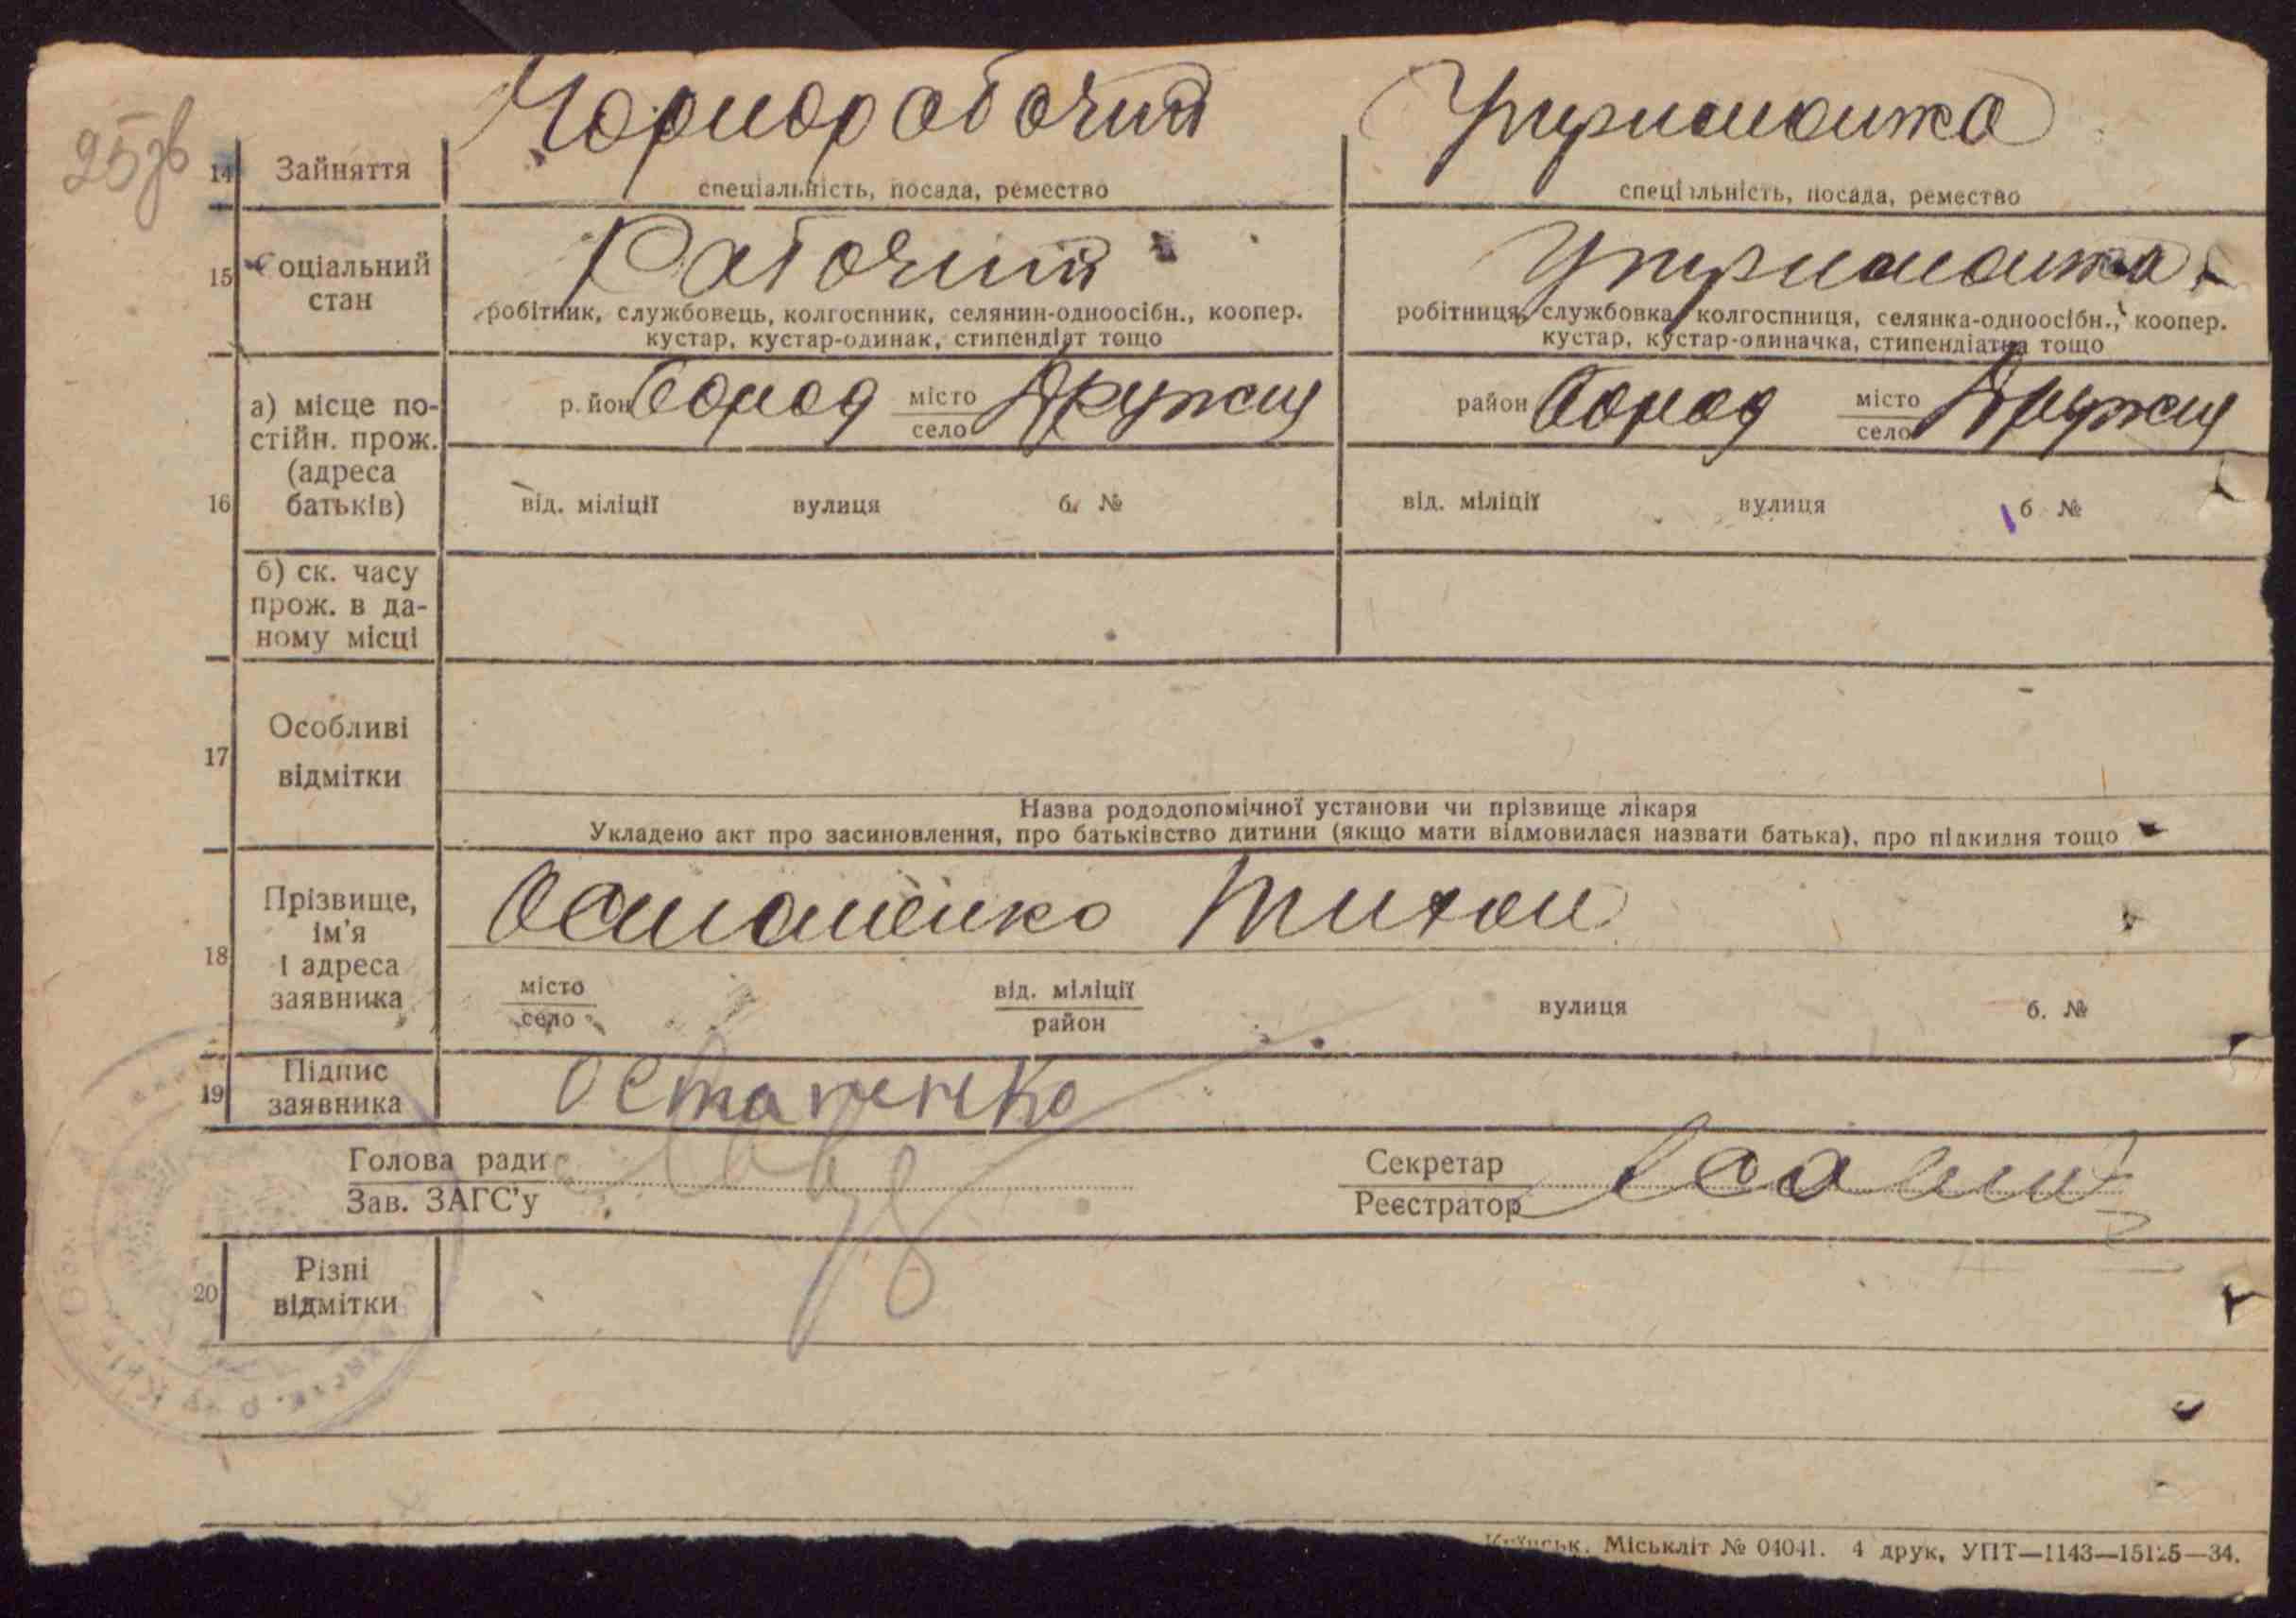 25зв
Чорнорабочий Утриманка
14 Зайняття
спеціальність, посада, ремество спеціальність, посада, ремество
Рабочий Утриманка
15 Соціальний стан
робітник, службовець, колгоспник, селянин-одноосібн., коопер. робітниця, службовка, колгоспниця, селянка-одноосібн., коопер.
кустар, кустар-одинак, стипендіат тощо кустар, кустар-одиначка, стипендіатка тощо
16 а) місце по-
стійн. прож.
(адреса
батьків)
район Город місто
село район Город місто
село
від. міліції вулиця б. № від. міліції вулиця б №
б) ск. часу
прож. в да-
ному місці
17 Особливі
відмітки
Назва рододопомічної установи чи прізвище лікаря
Укладено акт про засиновлення, про батьківство дитини (якщо мати відмовилася назвати батька), про підкидня тощо
18 Прізвище,
ім'я
і адреса
заявника
Остапенко Тихон
місто
село від. міліції
район вулиця б. №
19 Підпис
заявника
Остапенко
Голова ради Секретар
Зав. ЗАГС'у Реєстратор
20 Різні
відмітки
Київськ. Міськліт № 04041. 4 друк, УПТ—1143—15125—34.